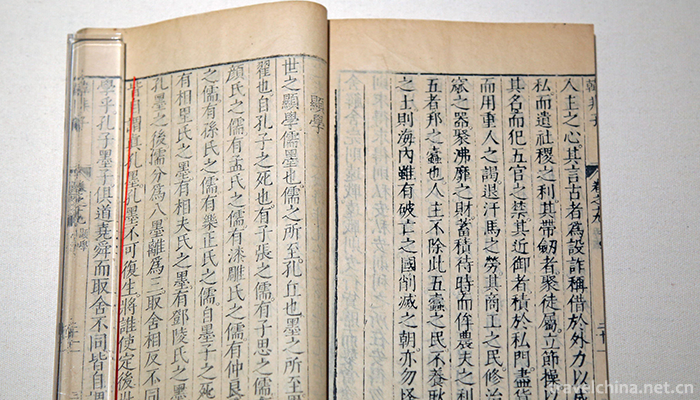 韓非子 卷之九 二十
人主之心其言古者為設詐稱借於外力以成
私而遺社稷之利其帶劒者聚徒屬立節操以
其名而犯五官之禁其近御者積於私門盡貨
而用重人之謁退汗馬之勞其商工之民修治
窳之器聚沸靡之財蓄積待時而侔農夫之利
五者邦之蠹也人主不除此五蠹之民不養耿
之士則海內雖有破亡之國削滅之朝亦勿怪
顯學
世之顯學儒墨也儒之所至孔丘也墨之所至
翟也自孔子之死也有子張之儒有子思之儒
顏氏之儒有孟氏之儒有漆雕氏之儒有仲良
之儒有孫氏之儒有樂正氏之儒自墨子之死
有相里氏之墨有相夫氏之墨有鄧陵氏之墨
孔墨之後儒分為八墨離為三取舍相反不同
皆自謂真孔墨孔墨不可復生將誰使定後世
學乎孔子墨子俱道堯舜而取舍不同皆自謂
卷之九 顯學
travelchina.net.cn